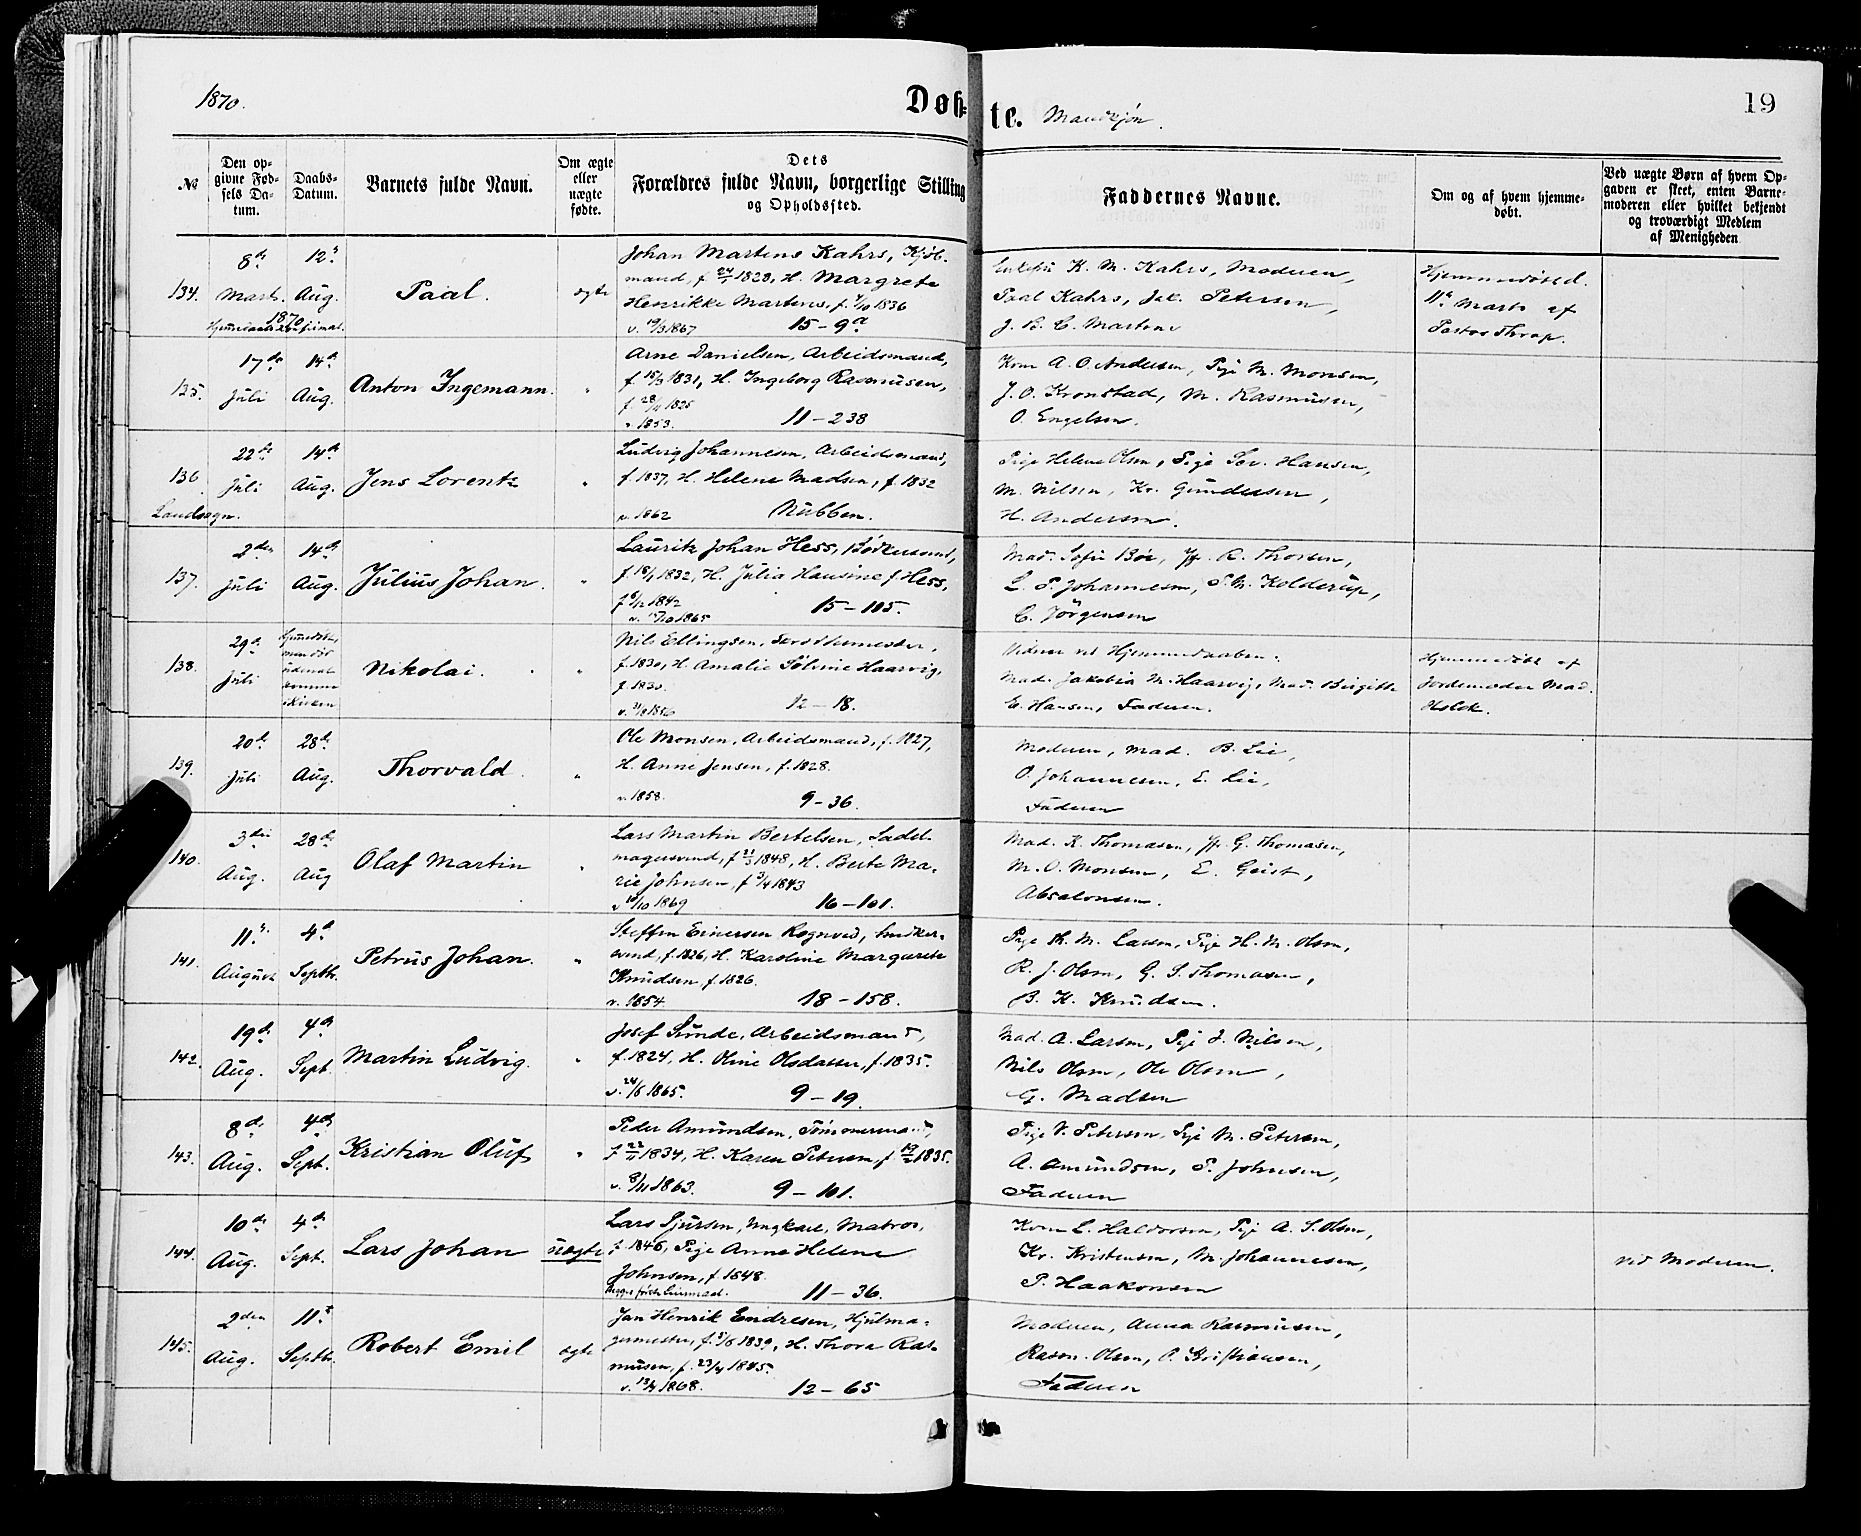 1870.
Døb-
te. Mandkjøn.
19
№
Den op-
givne Fød-
sels Da-
tum.
Daabs-
Datum.
Barnets fulde Navn.
Om ægte
eller
uægte
fødte.
Dets
Forældres fulde Navn, borgerlige Stilling
og Opholdssted.
Faddernes Navne.
Om og af hvem hjemme-
døbt.
Ved uægte Børn af hvem Op-
gaven er skeet, enten Barne-
moderen eller hvilket bekjendt
og troværdigt Medlem
af Menigheden
134.
8de
Marts.
1870
12te
Aug.
Paal.
ægte
Johan Martens Kahrs, Kjøb-
mand, f. 1828, H. Margrete
Henrikke Martens, f. 1836
v. 19/3 1867 15-9a
K. M. Kahrs, Moderen,
Paal Kahrs, Jak. Petersen,
J. B. C. Martens
Hjemmedøbt d.
11te Marts af
Pastor Thrap.
135.
17de
Juli
14de
Aug.
Anton Ingemann.
"
Arne Danielsen, Arbeidsmand,
f. 1831, H. Ingeborg Rasmusen,
f. 28/11 1825
v. 1853. 11-238
Kone A. O. Andersen, Pige M. Monsen,
J. O. Kronstad, M. Rasmusen,
O. Engelsen.
136
Landsogn.
22de
Juli
14de
Aug.
Jens Lorentz
"
Ludvig Johannesen, Arbeidsmand,
f. 1837, H. Helene Madsen, f. 1832
v. 1862 Nubben.
Pige Helene Olsen, Pige Sev. Hansen,
M. Nilsen, Kr. Gundersen,
H. Andersen.
137.
2den
Juli
14de
Aug.
Julius Johan.
"
Lauritz Johan Hess, Bødkersvend,
f. 18/1 1832, H. Julia Hansine f. Hess,
f. 6/12 1842
v. 15/10 1865 15-105.
Mad. Sofie Bøe, Jfr. R. Thorsen,
L. P. Johannesen, P. M. Kolderup,
C. Jörgensen
138.
29de
Juli
Hjemdøbt,
men død
uden at
komme
i Kirken
Nikolai.
"
Nils Ellingsen,
f. 1830, H. Amalie Seline Haarvig,
f. 1830.
v. 1856 12-18.
Vidner ved Hjemmedaaben:
Mad. Jakobia M. Haarvig, Mad. Birgitte
E. Hansen, Faderen.
Hjemmedøbt af
Jordemoder Mad.
Holck.
139.
20de
Juli
28de
Aug.
Thorvald.
"
Ole Monsen, Arbeidsmand, f. 1827,
H. Anne Jensen, f. 1828.
v. 1858. 9-36.
Moderen, Mad. B. Lie,
O. Johannesen, E. Lie,
Faderen
140.
3die
Aug.
28de
Aug
Olaf Martin
"
Lars Martin Bertelsen, Sadel-
magersvend, f. 21/3 1848, H. Berte Ma-
rie Johnsen, f. 3/4 1843
v. 10/10 1869 16-101.
Mad. K. Thomasen, Jfr. G. Thomasen,
M. O. Monsen, E. Geist,
Absalonsen.
141.
11te
August
4de
Septbr.
Petrus Johan.
"
Steffen Einersen Rognved, Snedker-
svend, f. 1826, H. Karoline Margrete
Knudsen, f. 1826.
v. 1854. 18-158.
Pige M. Larsen, Pige H. M. Olsen,
R. J. Olsen, G. S. Thomasen,
B. K. Knudsen.
142.
19de
Aug.
4de
Sept.
Martin Ludvig.
"
Josef Sunde, Arbeidsmand,
f. 1824, H. Oline Olsdatter, f. 1835.
v. 24/6 1865. 9-19.
Mad. A. Larsen, Pige I. Nilsen,
Nils Olsen, Ole Olsen,
G. Madsen
143.
8de
Aug.
4de
Sept.
Kristian Oluf
"
Peder Amundsen, Tømmermand,
f. 22/11 1834, H. Karen Petersen, f. 1835.
v. 8/11 1863. 9-101.
Pige V. Petersen, Pige M. Petersen,
A. Amundsen, P. Johnsen,
Faderen
144.
10de
Aug.
4de
Sept.
Lars Johan
uægte
Lars Sjursen, Ungkarl, Matros,
f. 1846, Pige Anne Helene
Johnsen, f. 1848.
Begges første Leiermaal. 11-36.
Kone L. Haldorsen, Pige A. S. Olsen,
Kr. Kristensen, M. Johannesen,
P. Haakonsen
Ved Moderen.
145.
2den
Aug.
11te
Septbr.
Robert Emil
ægte
Jan Henrik Endresen, Hjulma-
germester, f. 5/6 1839, H. Thora Ras-
musen, f. 23/4 1845.
v. 1868. 12-65
Moderen, Anna Rasmusen,
Rasm. Olsen, O. Kristiansen,
Faderen